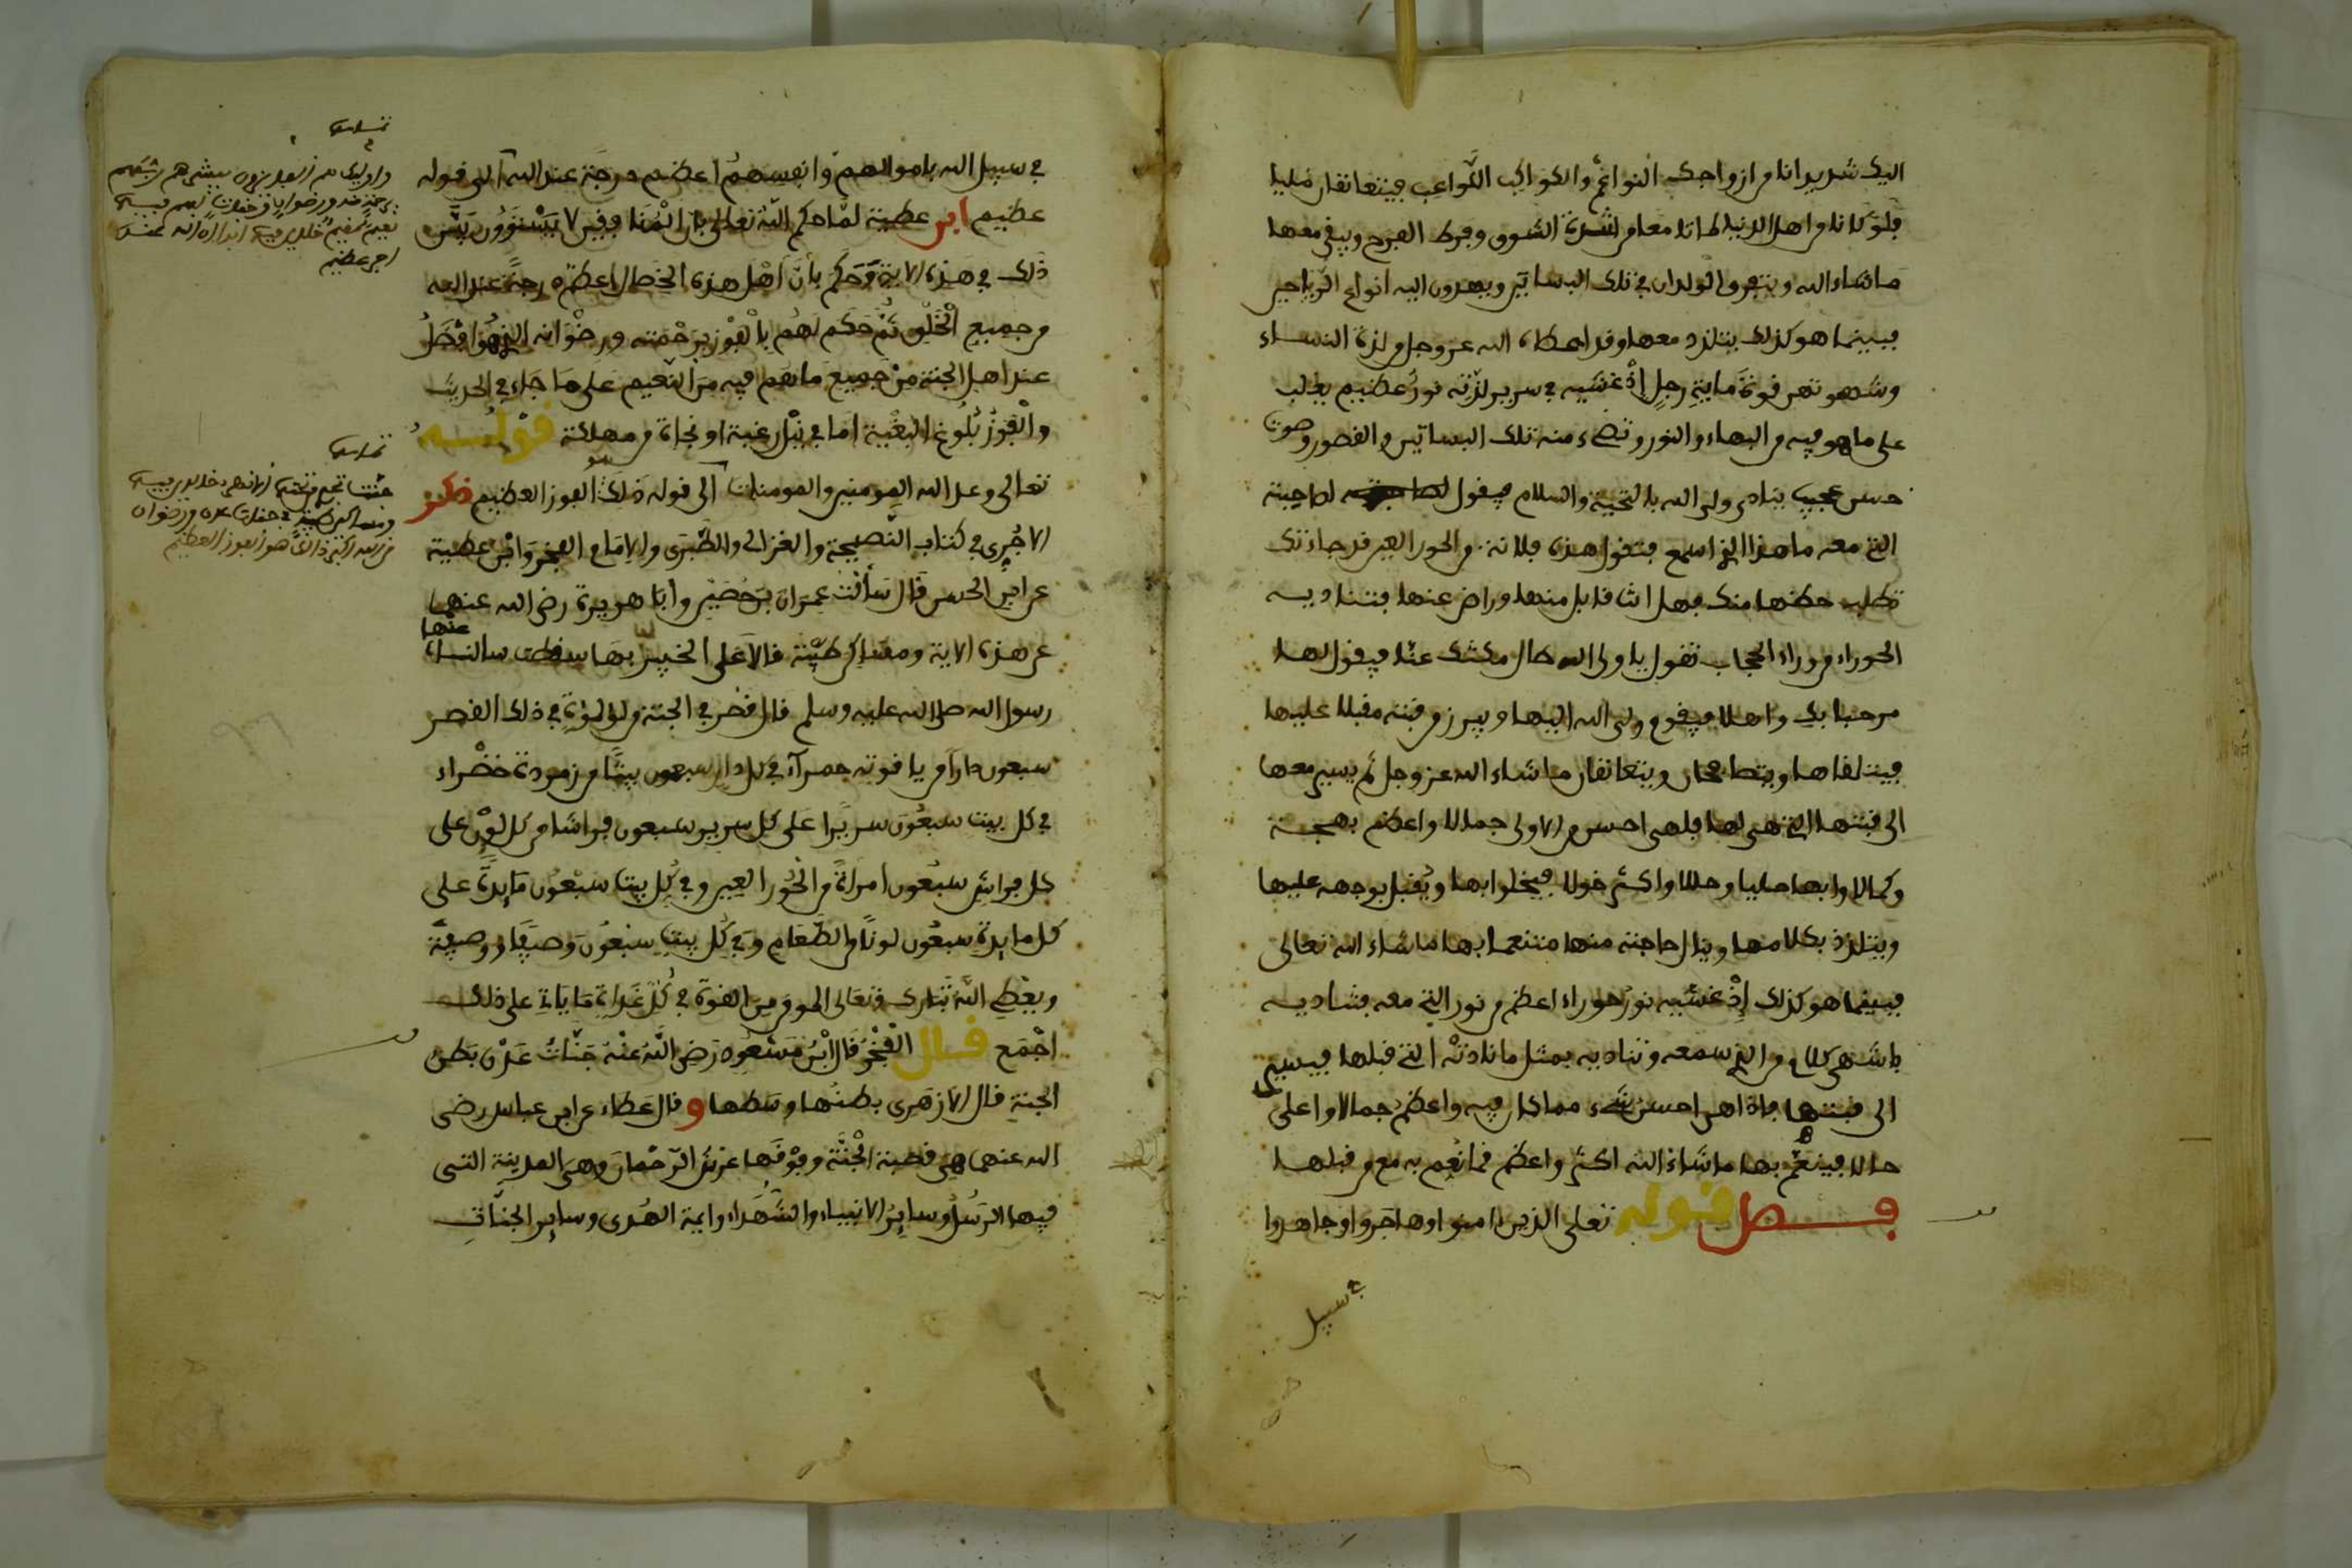 اليك شديد انا من ازواجك النواعم والكواكب الكواعب فيتعانقان مليا
فلو كانا من اهل الدنيا لماتا معا من شدة الشوق وفرط الفرح ويبقى معها
ماشاء الله ويتفرق الولدان في تلك البساتين ويهدون اليه انواع الرياحين
فبينما هو كذلك يتلذذ معها وقد اعطاه الله عز وجل من لذة النساء
وشهوتهن قوة ماية رجل اذ غشيه في سرير لذته نور عظيم يغلب
على ما هو فيه من البهاء والنور وتضيء منه تلك البساتين والقصور وصوت
حسن عجيب ينادى ولى الله بالتحية والسلام فيقول لصاحبته
التي معه ما هذا الذي اسمع فتقول هذه فلانة من الحور العين قد جاءتك
تطلب حظها منك فهل انت قابل منها وراض عنها فتناديه
الحوراء من وراء الحجاب تقول يا ولى الله طال مكثك عنا فيقول لها
مرحبا بك واهلا فيقوم ولى الله اليها ويبرز من قبته مقبلا عليها
فيتلقاها ويتصافحان ويتعانقان ماشاء الله عز وجل ثم يسير معها
الى قبتها التي هي لها فلهى احسن من الاولى جمالا واعظم بهجة
وكمالا وابها حليا وحللا واكثر خولا فيخلوا بها ويقبل بوجهه عليها
ويتلذذ بكلامها وينال حاجته منها متنعما بها ماشاء الله تعالى
فبينما هو كذلك إذ غشيه نور حوراء اعظم من نور التي معه فتناديه
باشهى كلام من الذي سمعه وتناديه بمثل ما نادته التي قبلها فيسير
الى قبتها فاذا هي احسن شيء مما كان فيه واعظم جمالا واعلى
حالا فينعم بها ماشاء الله اكثر واعظم مما نعم به مع من قبلها
فصل قوله تعلى الذين ءامنوا وهاجروا وجاهدوا
في سبيل
في سبيل الله باموالهم وانفسهم اعظم درجة عند الله الى قوله
عظيم ابن عطية لما حكم الله تعالى بان الفريقين لا يستوون بين
ذلك في هذه الاية فحكم بأن أهل هذه الخصال اعظم درجة عند الله
من جميع الخلق ثم حكم لهم بالفوز برحمته ورضوانه الذي هو افضل
عند اهل الجنة من جميع ما هم فيه من النعيم على ما جاء في الحديث
والفوز بلوغ البغية اما في نيل رغبة او نجاة من مهلكة قوله
تعالى وعد الله المومنين والمومنات الى قوله ذلك هو الفوز العظيم ذكر
الاجري في كتاب النصيحة والغزالى والطبرى والامام الفخر وابن عطية
عن ابي الحسن قال سألت عمران بن حصين وابا هريرة رضي الله عنهما
عن هذه الاية ومساكن طيبة قالا على الخبير بها سقطت سالنا عنها
رسول الله صلى الله عليه وسلم قال قصر في الجنة من لؤلؤة في ذلك القصر
سبعون دارا من ياقوته حمرآء في كل دار سبعون بيتا من زمردة خضراء
في كل بيت سبعون سريرا على كل سرير سبعون فراشا من كل لون على
كل فراش سبعون امرأة من الحور العين وفي كل بيت سبعون مايدة على
كل مايدة سبعون لونا من الطعام وفي كل بيت سبعون وصيفا ووصيفة
ويعطي الله تبارك وتعالى المومن من القوة في كل غداة ما ياتي على ذلك
اجمع قال الفخر قال ابن مسعود رضي الله عنه جنات عدن بطن
الجنة قال الازهرى بطنها وسطها وقال عطاء عن ابن عباس رضى
الله عنهما هي قصبة الجنة وفوقها عرش الرحمان وهي المدينة التى
فيها الرسل وساير الانبياء والشهداء وايمة الهدى وساير الجنات
واوليك هم الفايزون يبشرهم ربهم
برحمة منه ورضوان وجنات لهم فيها
نعيم مقيم خلدين فيها ابدا ان الله عنده
اجر عظيم
جنت تجرى من تحتها الانهر خلدين فيها
ومسكن طيبة في جنت عدن ورضوان
من الله اكبر ذلك هو الفوز العظيم